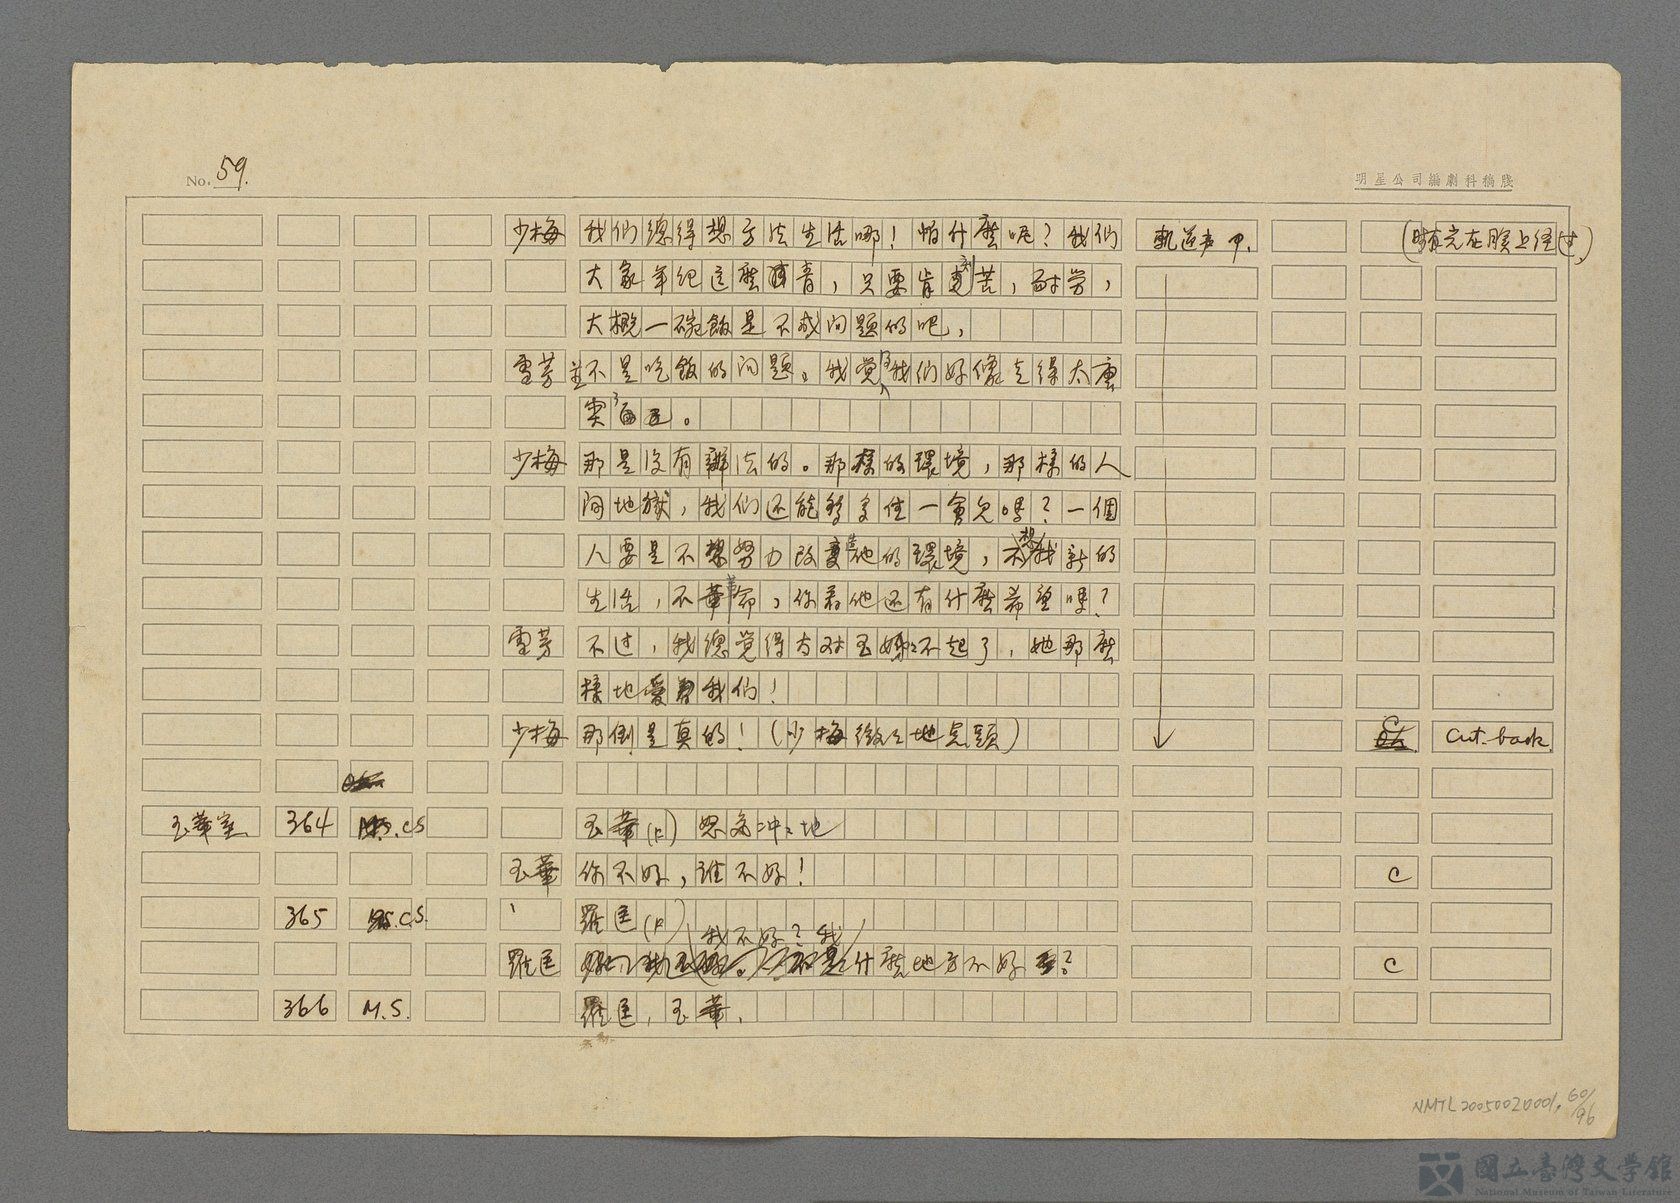 No. 59.
明星公司編劇科稿牋
少梅 我们總得想方法生活哪！怕什麽呢？我们 軌道声 中.
大家年纪這麽轻青，只要肯刻苦，耐劳，
大概一碗飯是不成问題的吧，
雪芳 並不是吃飯的问題。我覚得我们好像走得太唐
突了
少梅 那是没有辦法的。那樣的環境，那樣的人
间地獄，我们还能够多住一會兒嗎？一個
人要是不想努力改造他的環境，不想找新的
生活，不革命，你看他还有什麽希望嗎？
雪芳 不过，我總覚得太对玉姊不起了，她那麽
樣地愛我们！
少梅 那倒是真的！（少梅微々地点頭） C cut-back
玉華室 364 C.S 玉華(上) 怒気冲々地
玉華 你不好，誰不好！ C
365 C.S. 羅匡(上)
羅匡 我不好？我什麽地方不好？ C
366 M.S. 羅匡，玉華.
NMTL20050020001.60/96
國立臺灣文學館
National Museum of Taiwan Literature